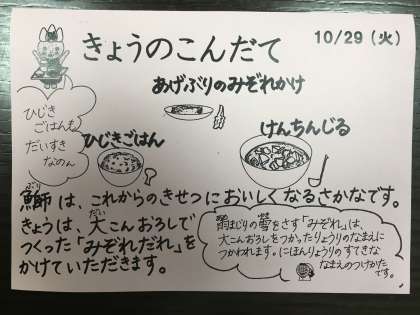 きょうのこんだて
10/29（火）
あげぶりのみぞれかけ
ひじき
ごはんも
だいすき
なのん
ひじきごはん
けんちんじる
ぶり
鰤は、これからのきせつにおいしくなるさかなです。
だい
きょうは、大こんおろしで
つくった「みぞれだれ」を
かけていただきます。
まじりの雪をさす「みぞれ」は、
大こんおろしをつかったりょうりのなまえに
つかわれます。にほんりょうりのすてきな
なまえのつけかた
です。